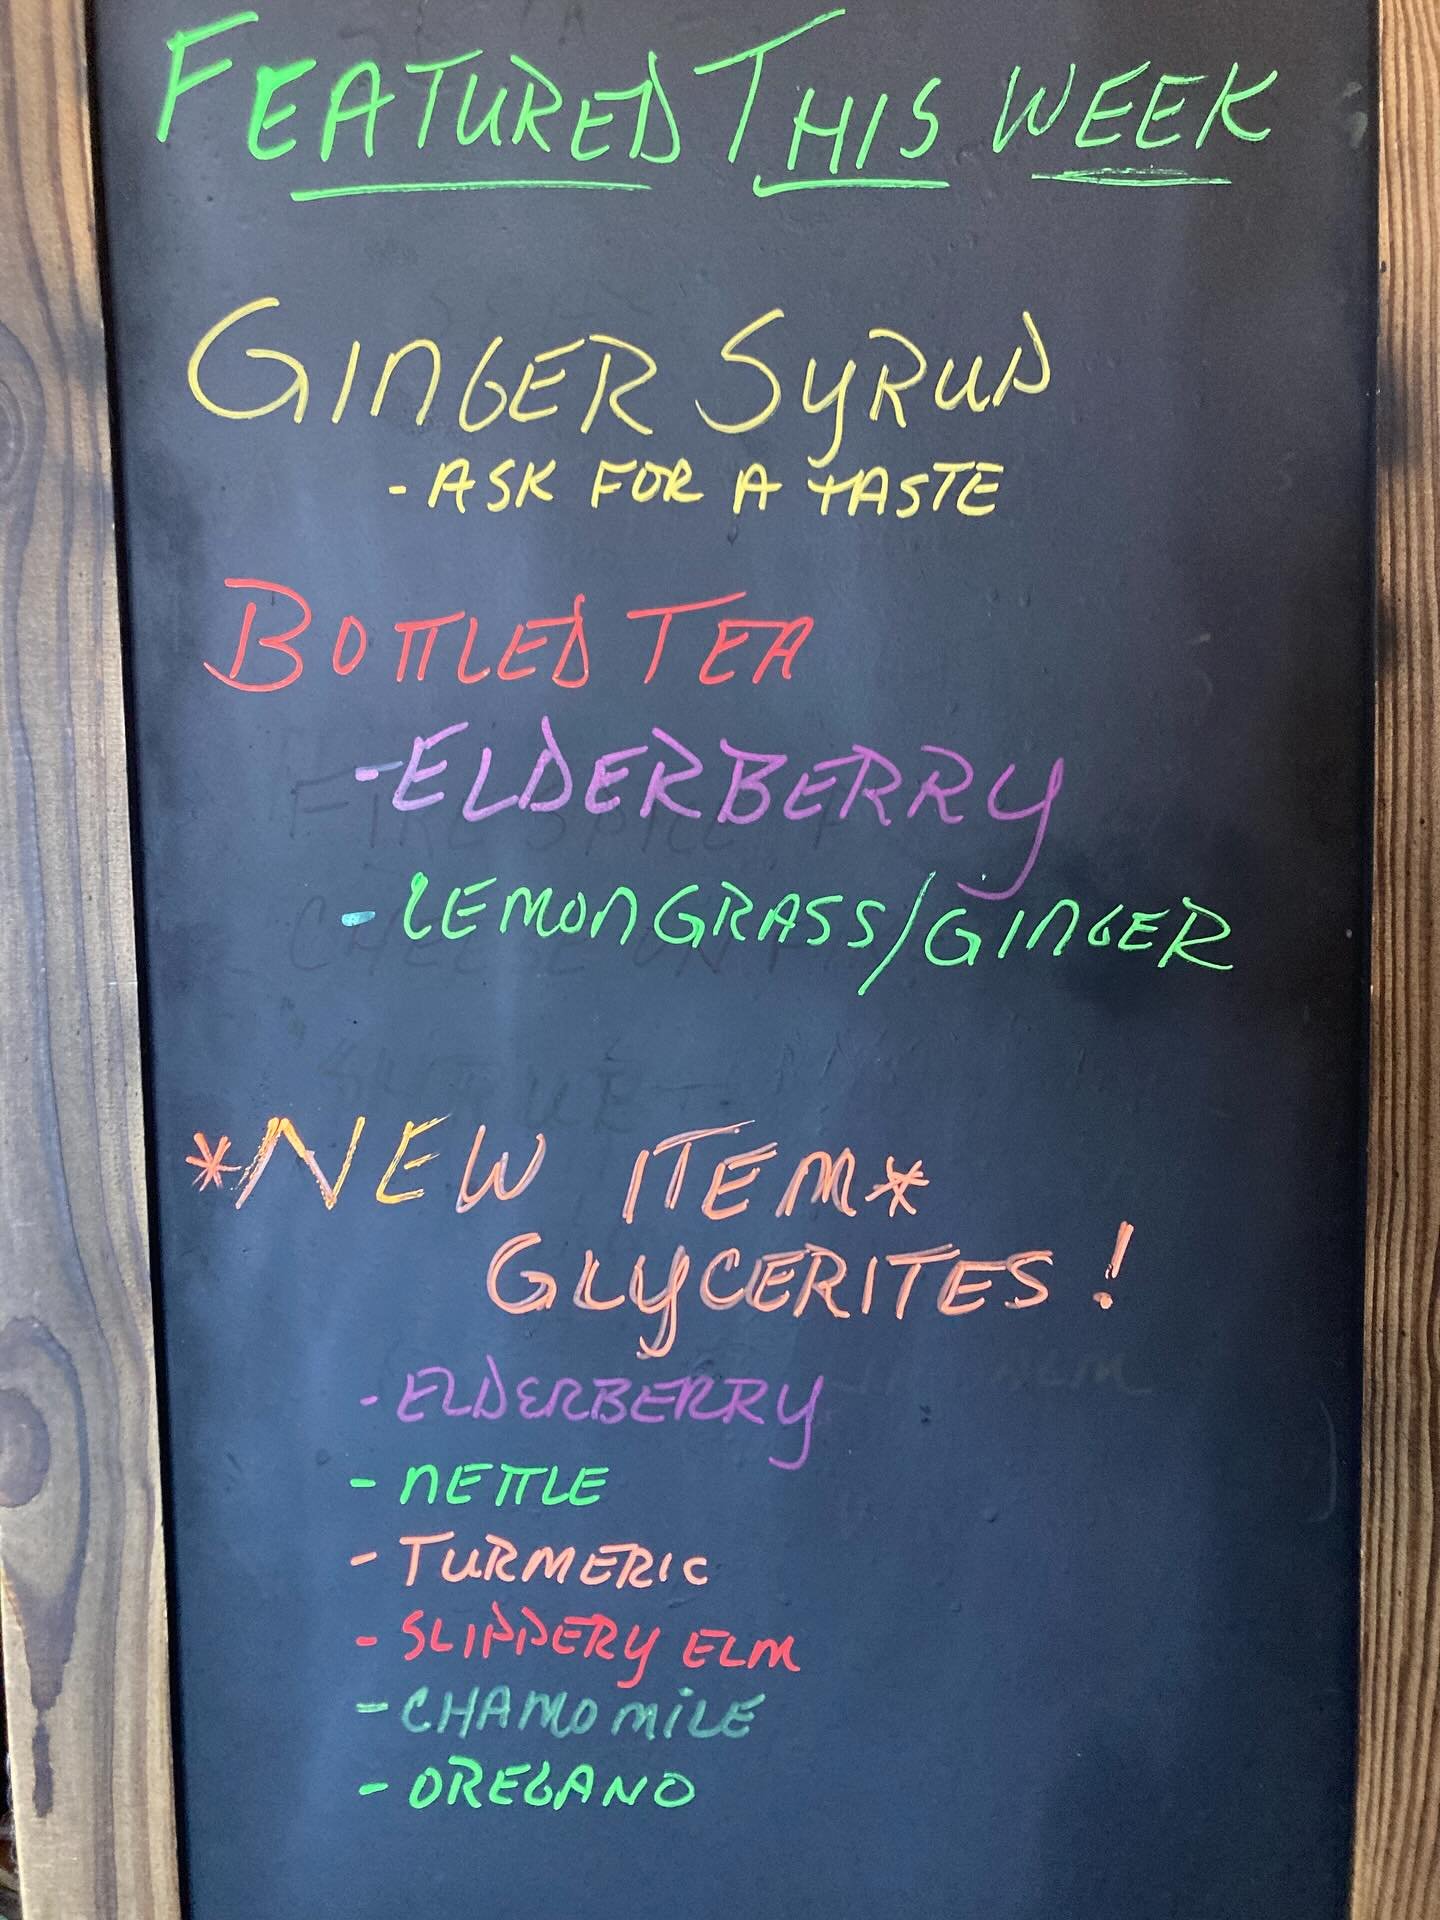 FEATURED THIS WEEK
GINGER SYRUP
- ASK FOR A TASTE
BOTTLED TEA
- ELDERBERRY
- LEMONGRASS/GINGER
*NEW ITEM*
GLYCERITES!
- ELDERBERRY
- NETTLE
- TURMERIC
- SLIPPERY ELM
- CHAMOMILE
- OREGANO